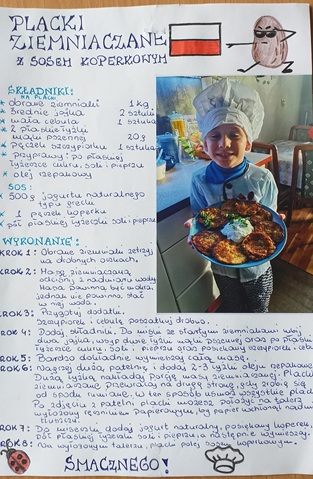 PLACKI
ZIEMNIACZANE
Z SOSEM KOPERKOWYM
SKŁADNIKI:
NA PLACKI
obrane ziemniaki 1 kg
średnie jajka 2 sztuki
mała cebula 1 sztuka
2 płaskie łyżki
mąki pszennej 20g
pęczek szczypiorku 1 sztuka
przyprawy: po płaskiej
łyżeczce cukru, soli i pieprzu
olej rzepakowy
SOS:
500g jogurtu naturalnego
typu greckiego
1 pęczek koperku
pół płaskiej łyżeczki soli i pieprzu
WYKONANIE:
KROK 1: Obrane ziemniaki zetrzyj
na drobnych oczkach,
KROK 2: Masę ziemniaczaną
odciśnij z nadmiaru wody.
Masa powinna być mokra,
jednak nie powinna stać
w niej woda.
KROK 3: Przygotuj dodatki.
Szczypiorek i cebulę posiekaj drobno.
KROK 4: Dodaj składniki. Do miski ze startymi ziemniakami wbij
dwa jajka, wsyp dwie łyżki mąki pszennej oraz po płaskiej
łyżeczce cukru, soli i pieprzu oraz posiekany szczypiorek i cebulę
KROK 5: Bardzo dokładnie wymieszaj całą masę.
KROK 6: Nagrzej dużą patelnię, i dodaj 2-3 łyżki oleju rzepakowego.
Dużą łyżką nakładaj porcję masy ziemniaczanej. Placki
ziemniaczane przewracaj na drugą stronę, gdy zrobią się
od spodu rumiane. W ten sposób usmaż wszystkie placki.
Po zdjęciu z patelni, placki możesz położyć na talerz
wyłożony ręcznikiem papierowym, by papier wchłonął nadmiar
tłuszczu.
KROK 7: Do miseczki dodaj jogurt naturalny, posiekany koperek,
pół płaskiej łyżeczki soli i pieprzu, a następnie wymieszaj.
KROK 8: Na wyłożonym talerzu, placki polej sosem koperkowym.
SMACZNEGO!